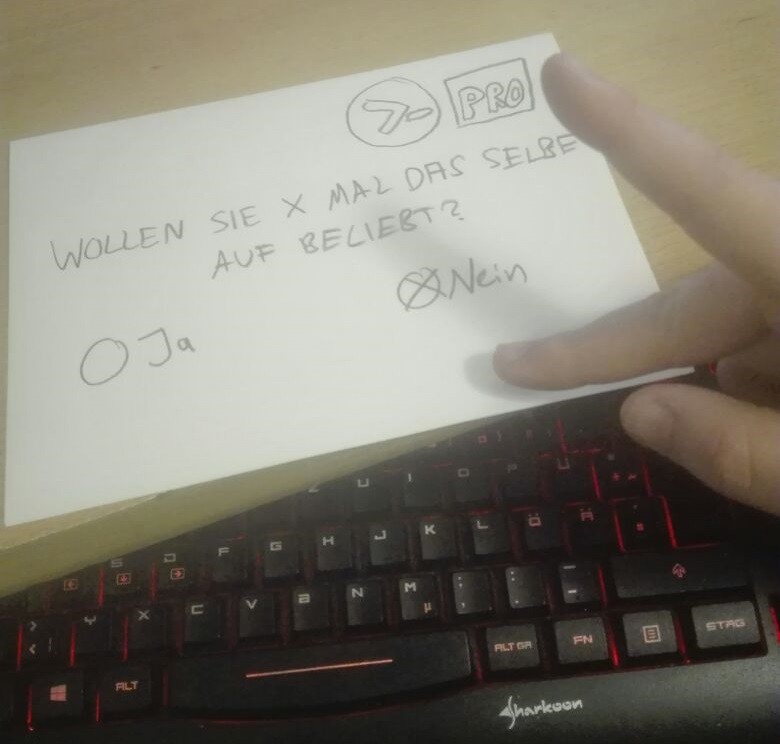 PRO
WOLLEN SIE X MAL DAS SELBE
AUF BELIEBT?
Nein
Ja
Z U I O P Ü
S D F G H J K L Ö Ä
> < | Y X C V B N M µ ; , : . _ -
ALT ALT GR FN STRG
Sharkoon